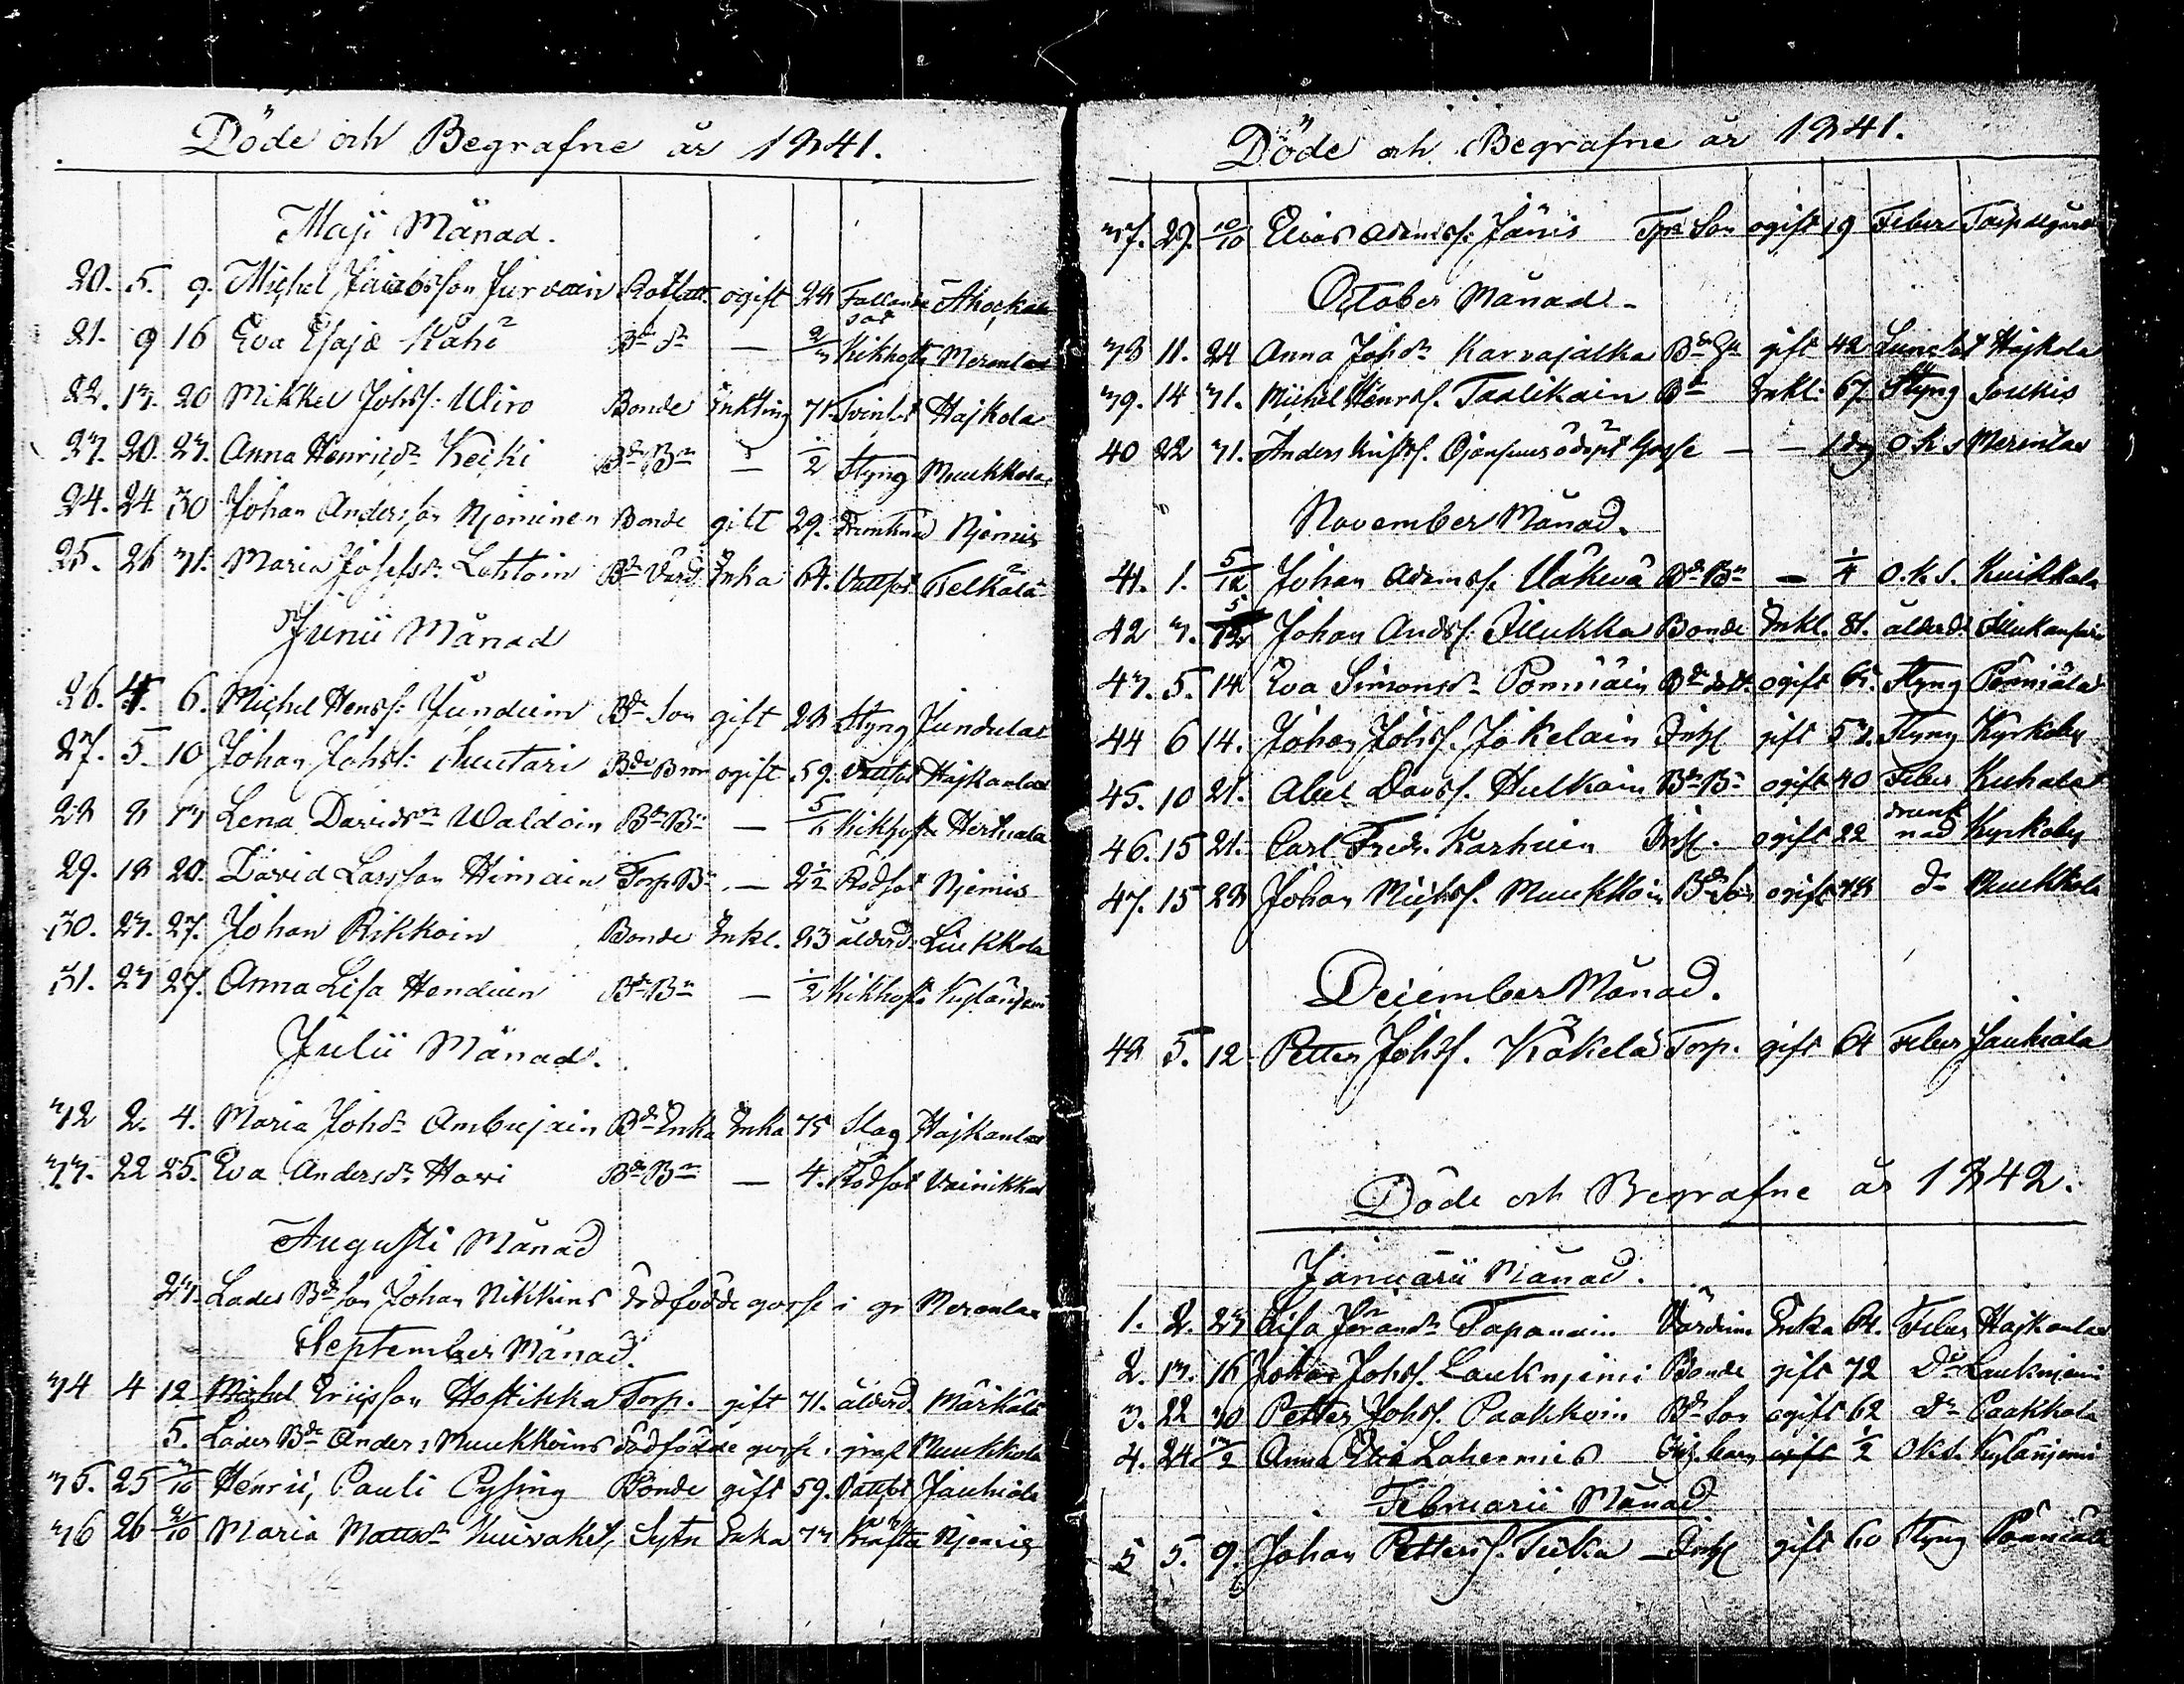 Döde och Begrafne år 1841.
Maji Månad.
20. 5. 9. Michel Jacobsson Jurvain ogift 28 Fallande sot
21. 9 16 Eva Esajæ Kähö Bde Dr — 2/3 Kikhosta Merenlax
22. 13. 20 Mikkel Johss: Wiro Bonde Enkling 71. Tvinsot Hajkola
23. 20. 23. Anna Henricsdr Keiki Bde Bn — 1/2 Styng Muukkola
24. 24. 30 Johan Andersson Njeminen Bonde gift 29. Drunknad Njemis
25. 26 31. Maria Josefsdr Lehtoin Bde Värd. Enka 64. Vattsot Telkälä
Junii Månad
26. 4. 6. Michel Henrss: Junduin Bde Son gift 28 Styng Jundula
27. 5. 10 Johan Johss: Suutari Bde Bror ogift 59. Vattsot Hajkanlax
28 8 13 Lena Davidsdr Waldoin Bde Bn — 5/6 Kikhosta Hertuala
29. 18 20. David Larsson Himain Torp. Bn — 2 1/2 Rödsot Njemis
30. 23. 27. Johan Rikkoin Bonde Enkl. 83 ålderd. Liukkola
31. 23 27. Anna Lisa Henduin Bde Bn — 1/2 Kikhosta Kylänjemi
Julii Månad.
32 2. 4. Maria Johsdr Ambujain Bde Enka Enka 75 Slag Hajkanlax
33. 22 25. Eva Andersdr Havi Bde Bn — 4. Rödsot Vainikka
Augusti Månad
23. Lades Bde Son Johan Nikkins dödfödde gosse i gr Merenlax
September Månad.
34 4 12 Michel Ericsson Hostikka Torp. gift 71. ålderd. Märkälä
5. Lades Bde Anders Muukkoins dödfödde gosse i graf Muukkola
35. 25 3/10 Henric Pauli Pysing Bonde gift 59. Vattsot Jauhiala
36 26 3/10 Maria Mattsdr Kuivaket, Sytn Enka 73 Kräfta Njemis
Döde och Begrafne år 1841.
37. 29. 10/10 Elias Adamss: Jänis Torp: Son ogift 19 Feber
October Månad.
38 11. 24 Anna Johsdr Karvajalka Bde gift 42 Lungsot Hajkola
39. 14 31. Michel Henrss. Taalikain Bde Enkl: 67 Styng Soukis
40 22 31. Anders Kristss. Ojansuus gosse — — 1 dag O.k.s Merenlax
November Månad.
41. 1. 5/12 Johan Adamss. Väkevä Bde Bn — 1/4 O.k.s. Kuikkala
42 3. 5/12 Johan Andss: Ilukka Bonde Enkl. 81. ålderd.
43. 5. 14 Eva Simonsdr Pönniäin Bde dott. ogift 65. Styng Pönniälä
44 6 14. Johan Johss. Jokelain Inh. gift 53. Styng Kyrkoby
45. 10 21. Abel Davss. Hulkoin Bde Bn ogift 40 Feber Kuhala
46. 15 21. Carl Fredr. Karhuin Inh. ogift 22 drunknad Kyrkoby
47. 15 28 Johan Michss. Muukkoin Bde Son ogift 38 do Muukkola
December Månad.
48 5. 12 Petter Johss. Kökelä Torp. gift 64 Feber Jauhiala
Döde och Begrafne år 1842.
Januarii Månad.
1. 2. 23 Lisa Jöransdr Tapanain Värdin. Enka 64. Feber Hajkanlax
2. 13. 16 Johan Johss. Lauknjemi Bonde gift 72 Do Lauknjemi
3. 22 30 Petter Johss. Paakkoin Bde Son ogift 62 Do Paakkola
4. 24 Anna Lahermis gift 1/2 O.k.s. Kylänjemi
Februarii Månad
5 5. 9. Johan Petterss. Tuka Inh. gift 60 Styng Pönniälä